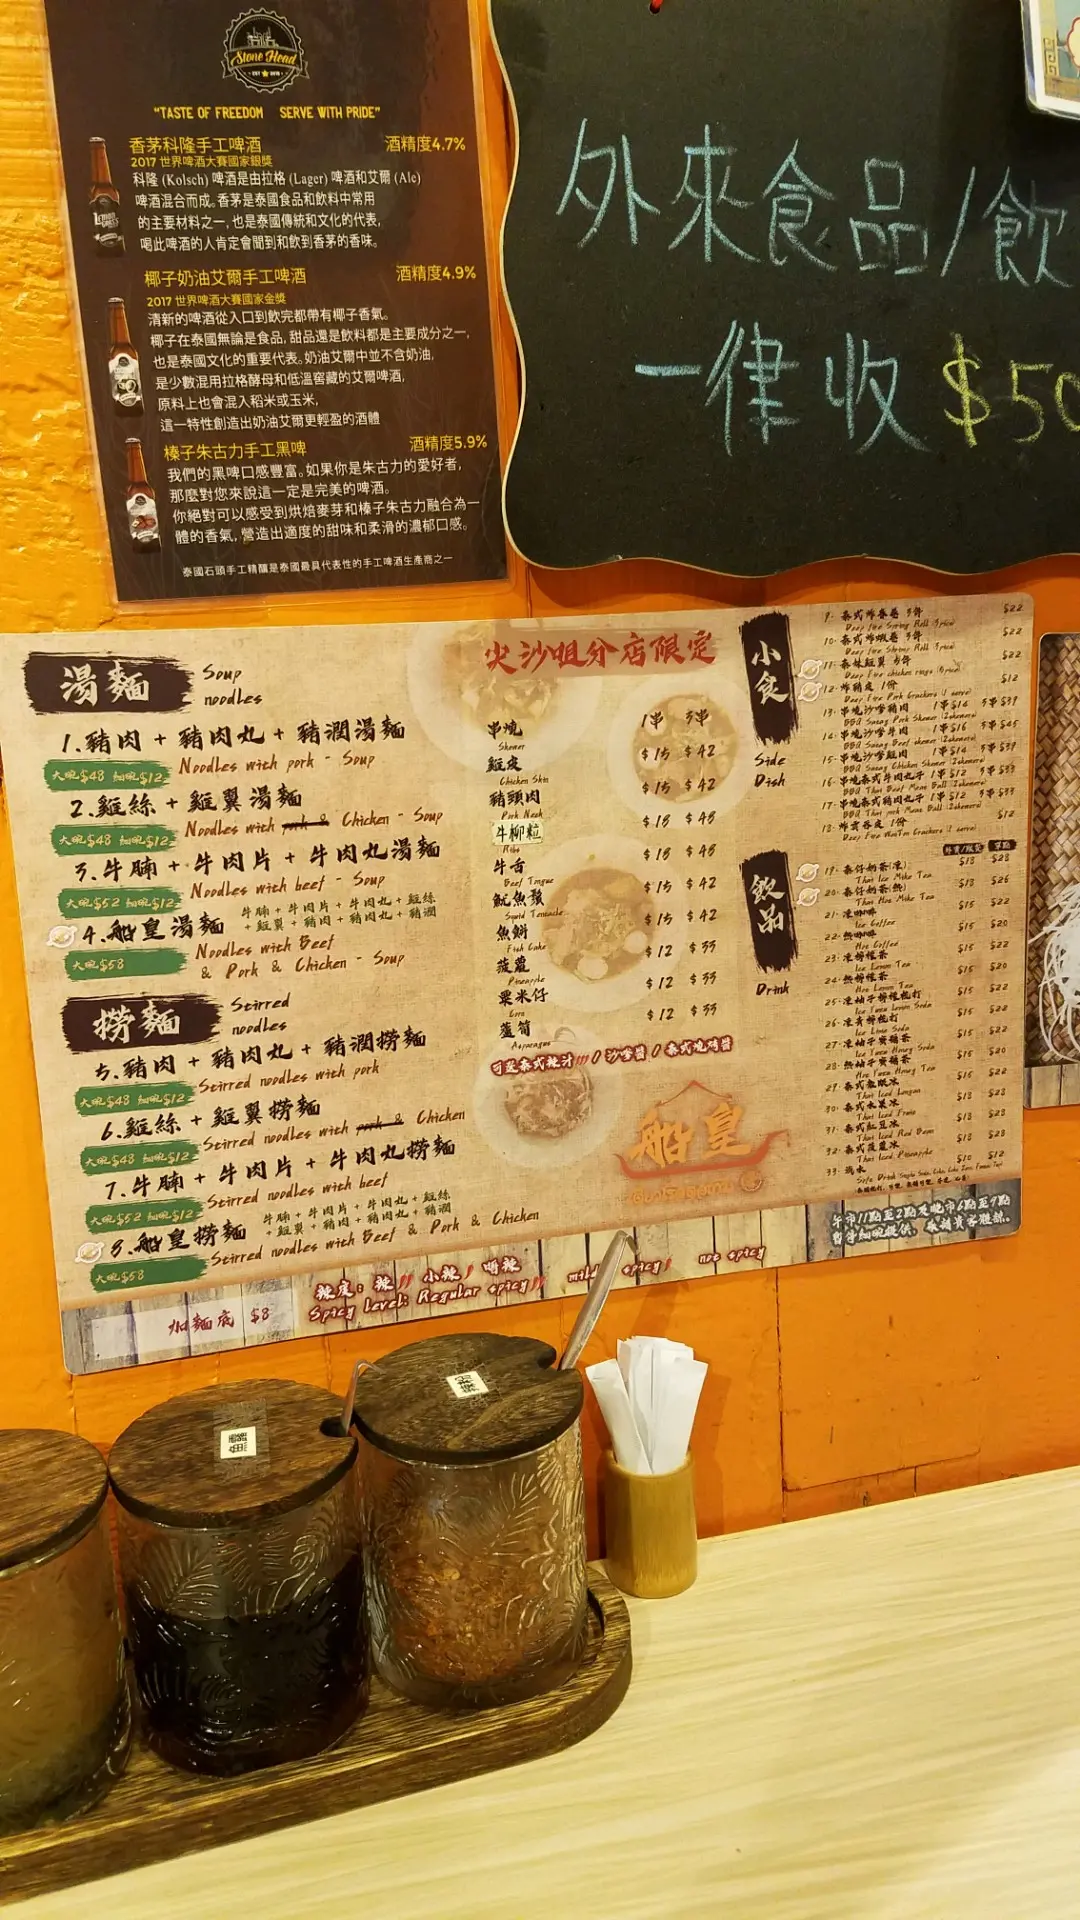 Stone Head
EST 2016
"TASTE OF FREEDOM SERVE WITH PRIDE"
香茅科隆手工啤酒 酒精度4.7%
2017 世界啤酒大賽國家銀獎
科隆 (Kolsch) 啤酒是由拉格 (Lager) 啤酒和艾爾 (Ale)
啤酒混合而成。香茅是泰國食品和飲料中常用
的主要材料之一, 也是泰國傳統和文化的代表,
喝此啤酒的人肯定會聞到和飲到香茅的香味。
椰子奶油艾爾手工啤酒 酒精度4.9%
2017 世界啤酒大賽國家金獎
清新的啤酒從入口到飲完都帶有椰子香氣。
椰子在泰國無論是食品, 甜品還是飲料都是主要成分之一,
也是泰國文化的重要代表。奶油艾爾中並不含奶油,
是少數混用拉格酵母和低溫窖藏的艾爾啤酒,
原料上也會混入稻米或玉米,
這一特性創造出奶油艾爾更輕盈的酒體
榛子朱古力手工黑啤 酒精度5.9%
我們的黑啤口感豐富。如果你是朱古力的愛好者,
那麼對您來說這一定是完美的啤酒。
你絕對可以感受到烘焙麥芽和榛子朱古力融合為一
體的香氣, 營造出適度的甜味和柔滑的濃郁口感。
泰國石頭手工精釀是泰國最具代表性的手工啤酒生產商之一
外來食品/飲
一律收 $50
湯麵 Soup noodles
1.豬肉 + 豬肉丸 + 豬潤湯麵
大碗$48 細碗$12 Noodles with pork - Soup
2.雞絲 + 雞翼湯麵
大碗$48 細碗$12 Noodles with pork & Chicken - Soup
3.牛腩 + 牛肉片 + 牛肉丸湯麵
大碗$52 細碗$12 Noodles with beef - Soup
4.船皇湯麵 牛腩 + 牛肉片 + 牛肉丸 + 雞絲
+ 雞翼 + 豬肉 + 豬肉丸 + 豬潤
大碗$58 Noodles with Beef
& Pork & Chicken - Soup
撈麵 Stirred noodles
5.豬肉 + 豬肉丸 + 豬潤撈麵
大碗$48 細碗$12 Stirred noodles with pork
6.雞絲 + 雞翼撈麵
大碗$48 細碗$12 Stirred noodles with pork & Chicken
7.牛腩 + 牛肉片 + 牛肉丸撈麵
大碗$52 細碗$12 Stirred noodles with beef
8.船皇撈麵 牛腩 + 牛肉片 + 牛肉丸 + 雞絲
+ 雞翼 + 豬肉 + 豬肉丸 + 豬潤
大碗$58 Stirred noodles with Beef & Pork & Chicken
加麵底 $8
辣度: 辣 小辣 唔辣
Spicy level: Regular spicy mild spicy not spicy
尖沙咀分店限定
串燒 1串 3串
Skewer
雞皮 $15 $42
Chicken Skin
豬頸肉 $15 $42
Pork Neck
牛柳粒 $18 $48
Ribs
牛舌 $18 $48
Beef Tongue
魷魚鬚 $15 $42
Squid Tentacle
魚餅 $15 $42
Fish Cake
菠蘿 $12 $33
Pineapple
粟米仔 $12 $33
Corn
蘆筍 $12 $33
Asparagus
可蘸泰式辣汁 / 沙嗲醬 / 泰式燒鷄醬
船皇
小食 Side Dish
9. 泰式炸春卷 3件 $22
Deep Fire Spring Roll
10. 泰式炸蝦卷 3件 $22
Deep Fire Shrimp Roll
11. 泰妹雞翼 $22
12. 炸豬皮 1份 $12
Deep Fire Pork Crackers (1 serve)
13. 串燒沙嗲豬肉 1串$14 3串$39
BBQ Satay Pork Skewer
14. 串燒沙嗲牛肉 1串$16 3串$45
BBQ Satay Beef Skewer
15. 串燒沙嗲雞肉 1串$14 3串$39
BBQ Satay Chicken Skewer
16. 串燒泰式牛肉丸子 1串$12 3串$33
BBQ Thai Beef Meat Ball
17. 串燒泰式豬肉丸子 1串$12 3串$33
BBQ Thai pork Meat Ball
18. 炸雲吞皮 1份 $12
Deep Fire WanTon Crackers (1 serve)
飲品 Drink
19. 泰仔奶茶(凍) $18 $28
Thai Ice Milk Tea
20. 泰仔奶茶(熱) $18 $26
Thai Hot Milk Tea
21. 凍咖啡 $15 $22
Ice Coffee
22. 熱咖啡 $15 $20
Hot Coffee
23. 凍檸檬茶 $15 $22
Ice Lemon Tea
24. 熱檸檬茶 $15 $20
Hot Lemon Tea
25. 凍柚子檸檬梳打 $15 $22
26. 凍青檸梳打 $15 $22
Ice Lime Soda
27. 凍柚子蜜糖茶 $15 $22
28. 熱柚子蜜糖茶 $15 $20
29. 泰式龍眼冰 $15 $22
Thai Iced Longan
30. 泰式水果冰 $18 $28
Thai Iced Fruit
31. 泰式紅豆冰 $18 $28
Thai Iced Red Bean
32. 泰式菠蘿冰 $18 $28
Thai Iced Pineapple
33. 汽水 $10 $12
午市11點至2點及晚市6點至9點
暫停細碗提供, 敬請貴客體諒。
魚露
辣粉